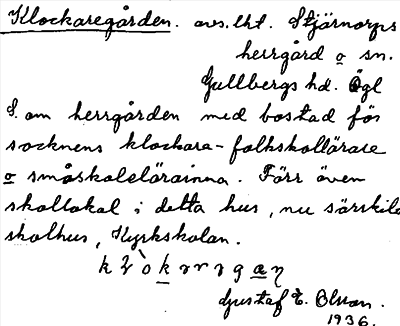 Klockaregården. avs. lht. Stjärnorps
herrgård o sn.
Gullbergs hd. Ögl
S. om herrgården med bostad för
socknens klockare-folkskollärare
o småskolelärarinna. Förr även
skollokal i detta hus, nu särskilt
skolhus, Kyrkskolan.
Gustaf E. Olsson.
1936.